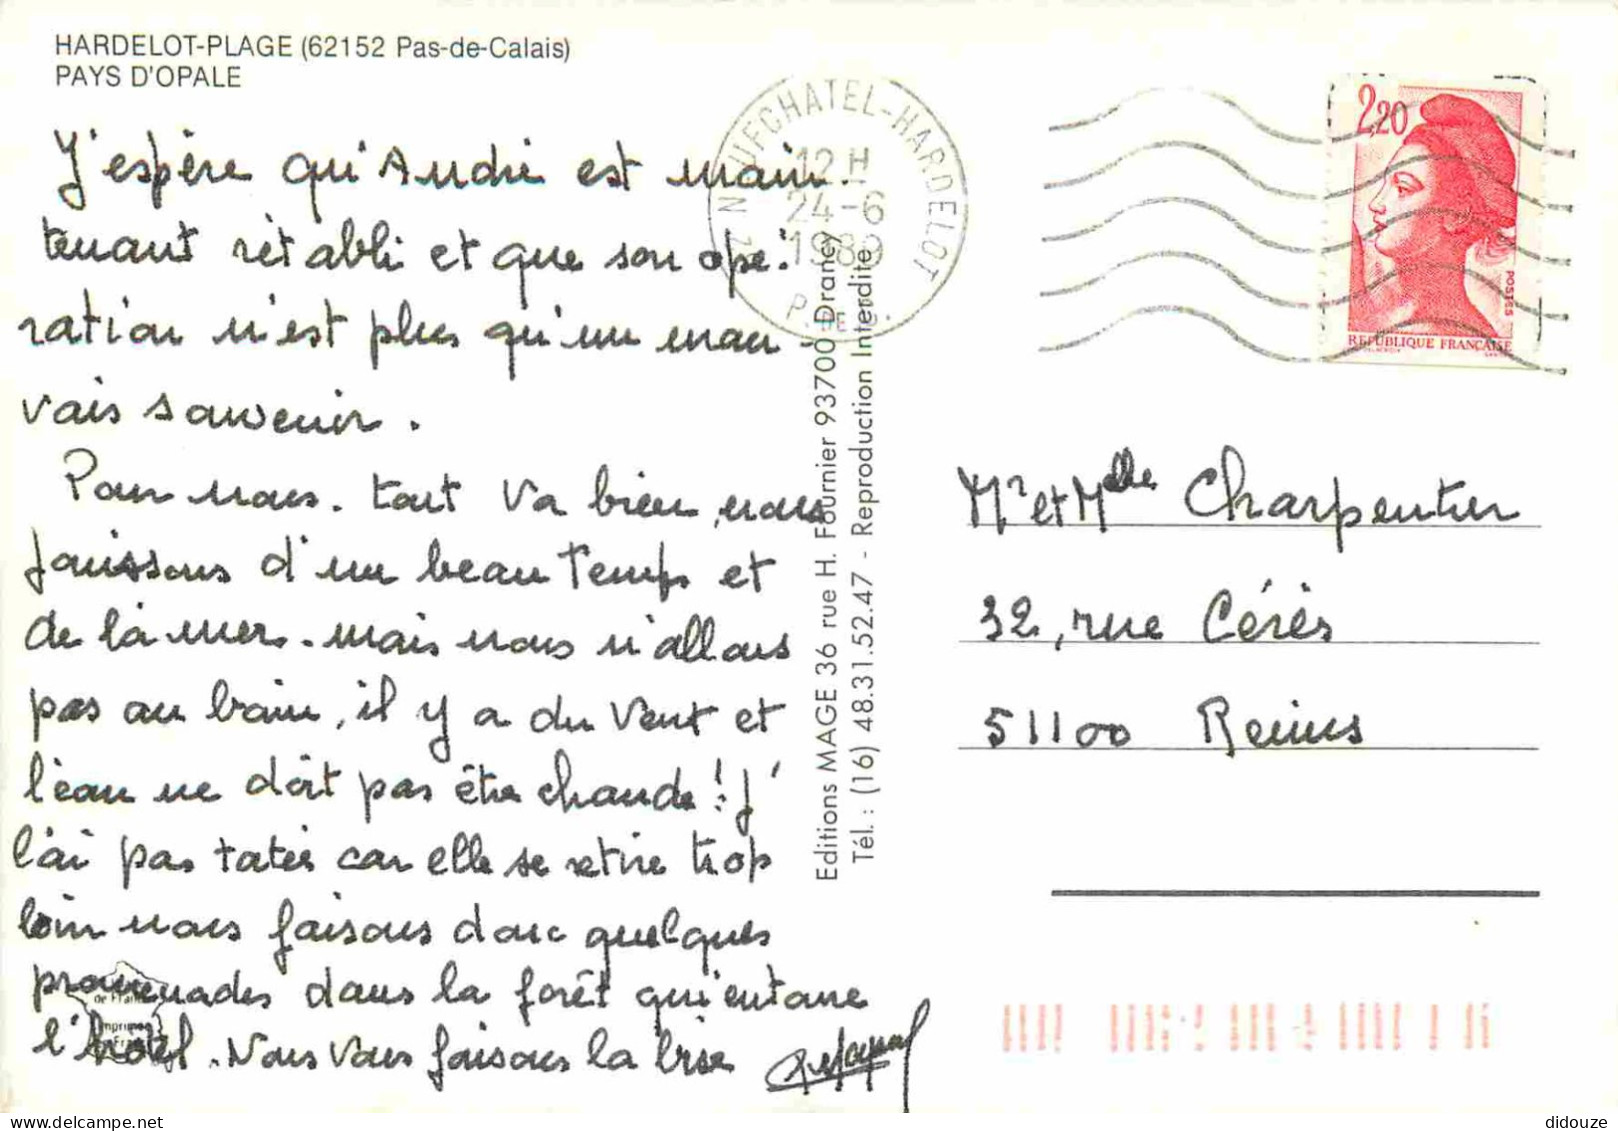 HARDELOT-PLAGE (62152 Pas-de-Calais)
PAYS D'OPALE
J'espère qu'André est main-
tenant rétabli et que son opé-
ration n'est plus qu'un mau-
vais souvenir.
Pour nous. tout va bien, nous
jouissons d'un beau temps et
de la mer. mais nous n'allons
pas au bain, il y a du vent et
l'eau ne doit pas être chaude! J'
l'ai pas tatée car elle se retire trop
loin nous faisons donc quelques
promenades dans la forêt qui entoure
l'hôtel. Nous vous faisons la bise
de France
Imprimé
NEUFCHATEL-HARDELOT
12 H
24-6
1989
P. DE C.
Editions MAGE 36 rue H. Fournier 93700 Drancy
Tél. : (16) 48.31.52.47 - Reproduction Interdite
2,20
POSTES
REPUBLIQUE FRANÇAISE
Mr et Mlle Charpentier
32, rue Cérès
51100 Reims
didouze